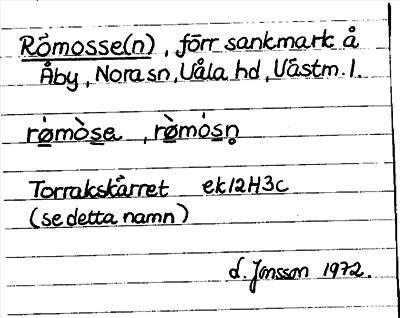 Römosse(n), förr sankmark å
Åby, Nora sn, Våla hd, Västm. l.
rø̀mòse, rø̀mósn̥
Torrakskärret ek12H3c
(se detta namn)
d. Jonsson 1972.